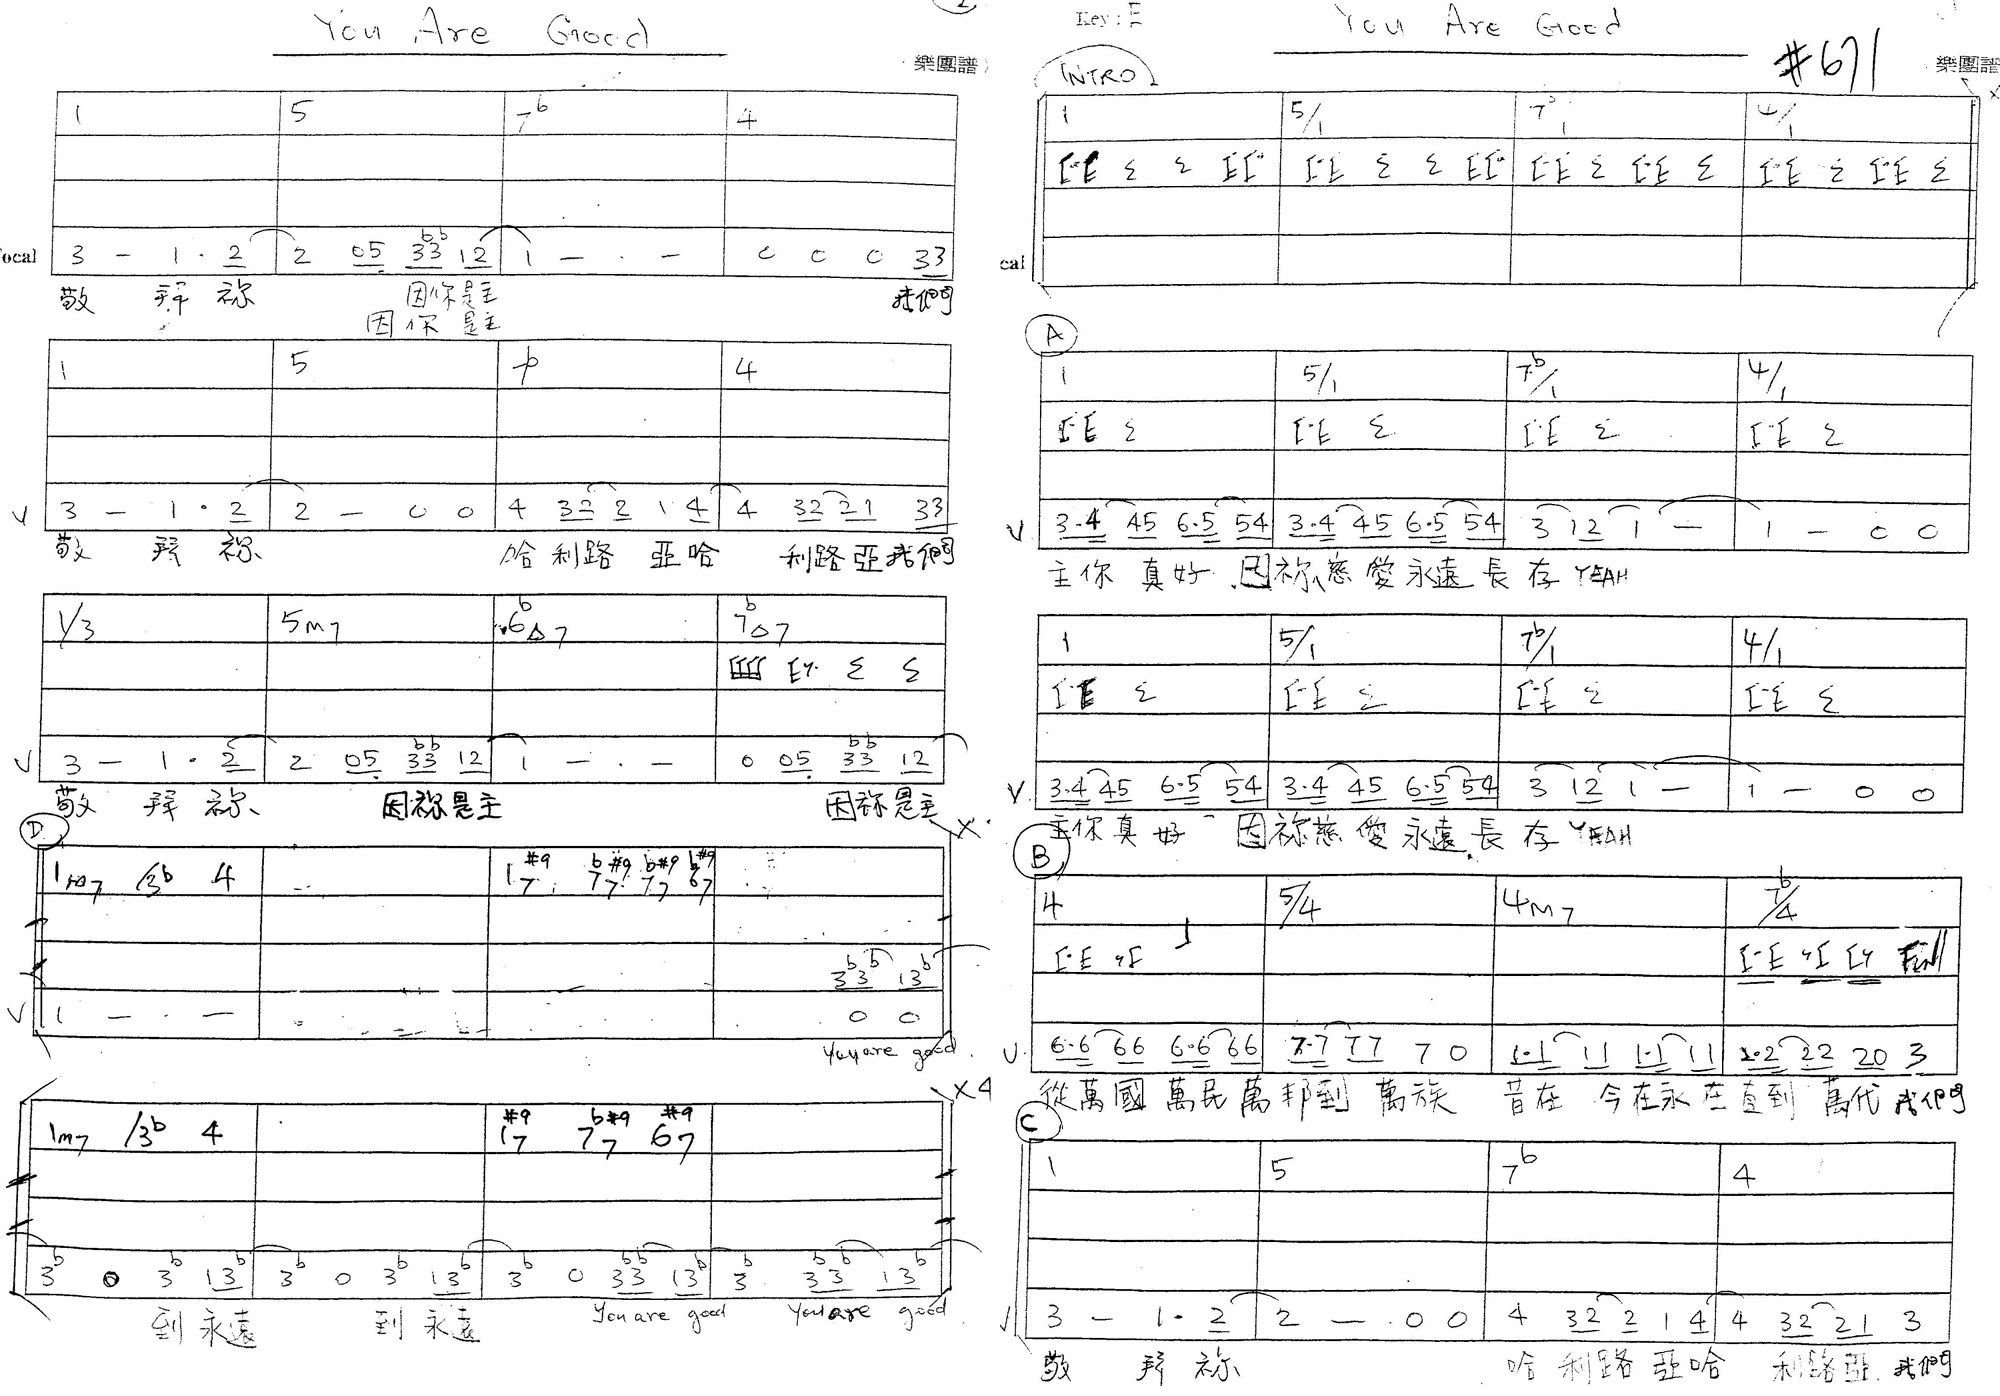 You Are Good
樂團譜
1 5 7b 4
ocal 3 – 1 · 2 2 05 3b3b 12 1 – · – 0 0 0 33
敬 拜 祢 因你是主 我們
因你是主
1 5 4
V 3 – 1 · 2 2 – 0 0 4 32 2 1 4 4 32 21 33
敬 拜 祢 哈利路 亞哈 利路亞我們
1/3 5m7 6b△7 7b△7
V 3 – 1 · 2 2 05 3b3b 12 1 – · – 0 05 3b3b 12
敬 拜 祢 因祢是主 因祢是主
D
1m7 /3b 4
3b3b 13b
V 1 – · – 0 0
You are good
X4
1m7 /3b 4 1#97 7b#97 6#97
3b 0 3b 13b 3b 0 3b 13b 3b 0 3b3b 13b 3b 3b3b 13b
到 永遠 到 永遠 You are good You are good
Key: E
You Are Good
#671
樂團譜
INTRO
1 5/1 7b/1 4/1
cal
A
1 5/1 7b/1 4/1
V 3·4 45 6·5 54 3·4 45 6·5 54 3 12 1 – 1 – 0 0
主你 真好 因祢慈愛永遠長存 YEAH
1 5/1 7b/1 4/1
V 3·4 45 6·5 54 3·4 45 6·5 54 3 12 1 – 1 – 0 0
主你真好 因祢慈愛永遠長存 YEAH
B
4 5/4 4m7 7b/4
Fill
V 6·6 66 6·6 66 7·7 77 7 0 1·1 11 1·1 11 2·2 22 20 3
從萬國萬民萬邦到萬族 昔在 今在永在直到萬代 我們
C
1 5 7b 4
V 3 – 1 · 2 2 – · 0 0 4 32 2 1 4 4 32 21 3
敬 拜 祢 哈利路亞哈 利路亞 我們